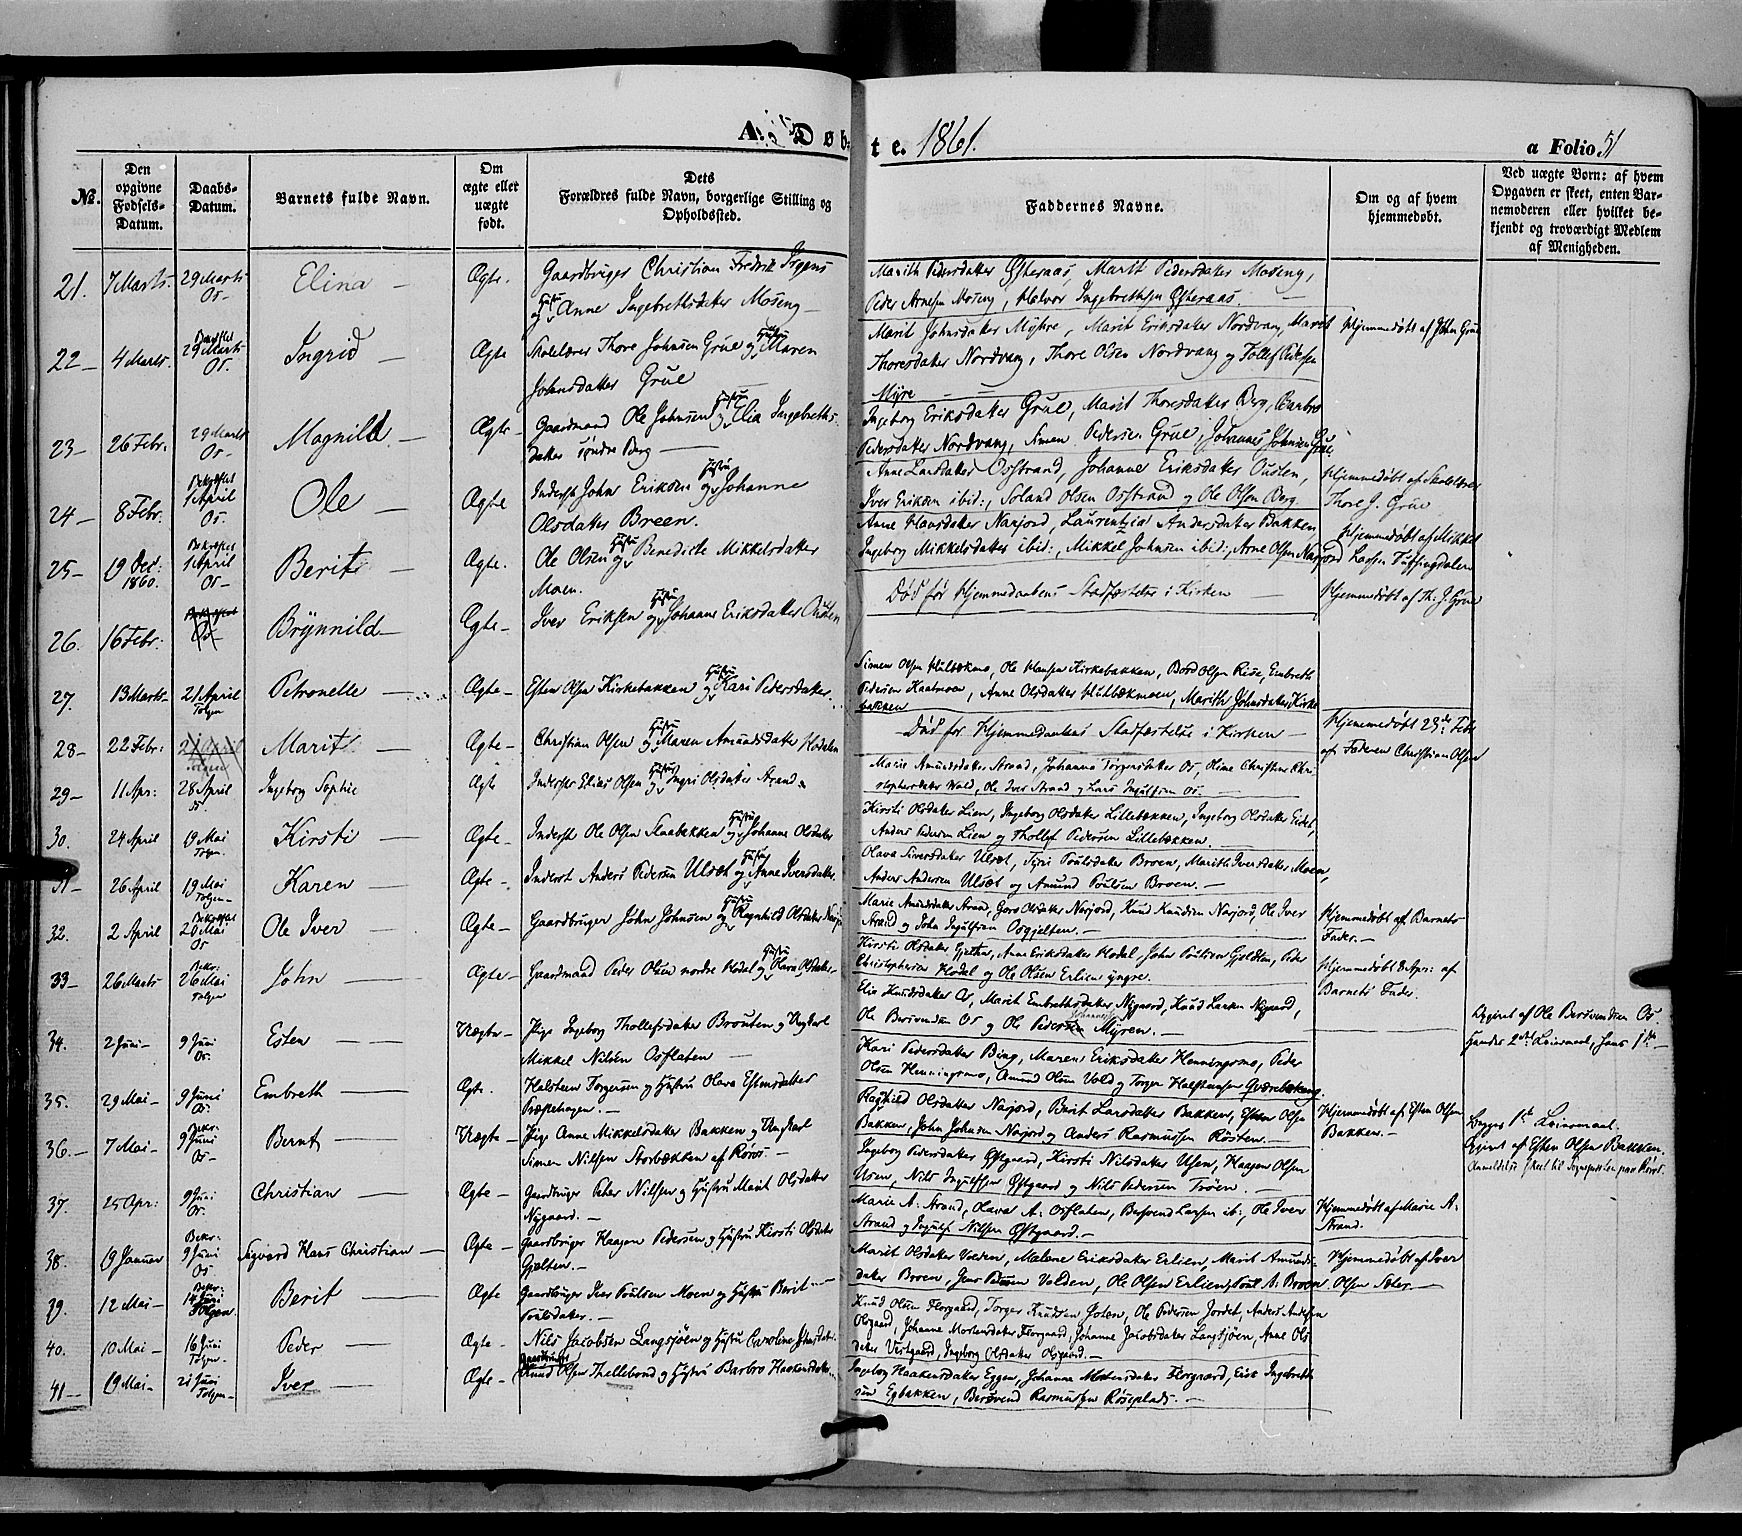 A. Døbte. 1861.
a Folio 51
No.
Den opgivne Fødsels-Datum.
Daabs-Datum.
Barnets fulde Navn.
Om ægte eller uægte født.
Dets Forældres fulde Navn, borgerlige Stilling og Opholdssted.
Faddernes Navne.
Om og af hvem hjemmedøbt.
Ved uægte Børn: af hvem Opgaven er skeet, enten Barnemoderen eller hvilket bekjendt og troværdigt Medlem af Menigheden.
21. 7 Marts. 29 Marts Os- Elina - Ægte. Gaardbruger Christian Fredrik Irgens
og Hustru Anne Ingebrethsdatter Moseng -
Marith Pedersdatter Østeraas, Marit Pedersdatter Moseng,
Peder Arnesen Moseng, Halvor Ingebrethsen Østeraas. -
22- 4 Marts. 29 Marts Os. Ingrid - Ægte Skolelærer Thore Johnsen Grue og Hustru Maren
Johnsdatter Grue -
Marit Johnsdatter Myhre, Marit Eriksdatter Nordvang, Marit
Thoresdatter Nordvang, Thore Olsen Nordvang og Tollef Pedersen
Myre - -
Hjemmedøbt af John Grue
23- 26 Febr. 29 Marts Os- Magnild - Ægte- Gaardmand Ole Johnsen og Hustru Elia Ingebreths-
datter søndre Berg -
Ingeborg Eriksdatter Grue, Marit Thoresdatter Berg, Barbro
Pedersdatter Nordvang, Simen Pedersen Grue, Johannes Johnsen Grue
24- 8 Febr. 1 April Os. Ole - Ægte Inderst John Eriksen og Hustru Johanne
Olsdatter Breen.
Anne Larsdatter Osstrand, Johanne Eriksdatter Ousten,
Iver Eriksen ibid:, Ole Olsen Berg.
Hjemmedøbt af Skolelærer
Thore J. Grue
25- 19 Dec: 1860. 1 April Os- Berit - Ægte. Ole Olsen og Hustru Benedicte Mikkelsdatter
Moen.
Anne Hansdatter Narjord, Laurentzia Andersdatter Bakken,
Ingeborg Mikkelsdatter ibid:, Mikkel Johnsen ibid:, Arne Olsen Narjord
Hjemmedøbt af Mikkel
26. 16 Febr: Os- Brynnild - Ægte- Iver Eriksen og Hustru Johanne Eriksdatter Ousten
Død før Hjemmedaabens Stadfæstelse i Kirken -
Hjemmedøbt af Th: J. Grue
27. 13 Marts- 21 April Tolgen Petronelle - Ægte- Esten Olsen Kirkebakken og Hustru Kari Pedersdatter.
Simen Olsen Hulbækmo, Ole Hansen Kirkebakken, Embreth
Pedersen, Anne Olsdatter Hulbækmoen, Marith Johnsdatter Kirke
bakken
28- 22 Febr: Marit - Ægte- Christian Olsen og Hustru Maren Amundsdatter Hodalen
- Død før Hjemmedaabens Stadfæstelse i Kirken -
Hjemmedøbt 23de Febr
af Faderen Christian Olsen
29- 11 Apr: 28 April Os Ingeborg Sophie Ægte Inderster Elias Olsen og Hustru Ingri Olsdatter Strand.
Marie Amundsdatter Strand, Johanna Torgersdatter Os, Oline Christine Chri-
stophersdatter Wold, Ole Iver Strand og Lars Ingulfsen Os. -
30. 24 April 19 Mai Tolgen. Kirsti - Ægte- Inderst Ole Olsen og Hustru Johanne Olsdatter
Kirsti Olsdatter Lien, Ingeborg Olsdatter Lillebækken, Ingeborg Olsdatter
Anders Pedersen Lien og Thollef Pedersen Lillebækken. -
31- 26 April 19 Mai Tolgen- Karen - Ægte- Inderst Anders Pedersen Ulset og Hustru Anne Iversdatter.
Olava Siversdatter Ulset, Poulsdatter Broen, Marith Iversdatter Moen,
Anders Andersen Ulset og Amund Poulsen Broen. -
32. 2 April 20 Mai Os Ole Iver - Ægte- Gaardbruger John Johnsen og Hustru Ragnhild Olsdatter
Marie Amundsdatter Strand, Goro Olsdatter Narjord, Knud Knudsen Narjord, Ole Iver
Strand og John Ingulfsen Osgjelten. -
Hjemmedøbt af Barnets
Fader. -
33- 26 Marts Bekr. 26 Mai Tolgen John - Ægte- Gaardmand Peder Olsen nordre Hodal og Hustru Olava Olsdatter-
Kirsti Olsdatter, Anne Eriksdatter Hodal, John Poulsen, Peder
Christophersen Hodal og Ole Olsen Erlien yngre.
Hjemmedøbt 8 Apr: af
Barnets Fader.
34. 2 Juni- 9 Juni Os. Esten - Uægte- Pige Ingeborg Thollefsdatter Brouten og Ungkarl
Mikkel Nilsen Osflaten -
Elie Knudsdatter Os, Marit Embrethsdatter Nygaard, Knud Larsen Nygaard,
Ole Bersvendsen Os og Ole Pedersen Myren. -
Opgivet af Ole Bersvendsen Os.
Hendes 2det Leiermaal, hans 1ste -
35. 29 Mai- 9 Juni Os. Embreth - Ægte. Halsteen Torgersen og Hustru Olava Estensdatter
Præstehagen. -
Kari Pedersdatter Bing, Maren Eriksdatter Henningsmo, Peder
Olsen Henningsmo, Amund Olsen Vold og Torger Halstensen
36- 7 Mai- Bekr: 9 Juni Os- Bernt - Uægte- Pige Anne Mikkelsdatter Bakken og Ungkarl
Simen Nilsen Storbækken af Røros. -
Ragnhild Olsdatter Narjord, Berit Larsdatter Bakken, Esten Olsen
Bakken, John Johnsen Narjord og Anders Rasmussen Røsten. -
Hjemmedøbt af Esten Olsen
Bakken. -
Begges 1ste Leiermaal.
Opgivet af Esten Olsen Bakken.
37. 25 Apr: 9 Juni Os. Christian - Ægte- Gaardbruger Peter Nilsen og Hustru Marit Olsdatter
Nygaard. -
Ingeborg Pedersdatter Østgaard, Kirsti Nilsdatter Usen, Haagen Olsen
Usen, Nils Ingulfsen Østgaard og Nils Pedersen Trøen. -
38. 19 Januar Bekr: 9 Juni Os Sigvard Hans Christian - Ægte- Gaardbruger Haagen Pedersen og Hustru Kirsti Olsdatter
Gjelten. -
Marie A: Strand, Olava A: Osflaten, Bersvend Larsen ib:, Ole Iver
Strand og Ingulf Nilsen Østgaard. -
Hjemmedøbt af Marie A:
Strand.
39. 12 Mai- Bekr: Juni Tolgen. Berit - Ægte Gaardbruger Iver Poulsen Moen og Hustru Berit
Poulsdatter. -
Marit Olsdatter Volden, Malene Eriksdatter Erlien, Marit Amunds-
datter Broen, Jens Volden, Ole Olsen Erlien, Poul A. Broen.
Hjemmedøbt af Iver
Olsen -
40. 10 Mai- 16 Juni Tolgen- Peder - Ægte- Nils Jacobsen Langsjøen og Hustru Caroline
Knud Olsen Florgaard, Torger Knudsen, Ole Pedersen Jordet, Anders Andersen
Johanne Mortensdatter Florgaard, Johanne Jacobsdatter Langsjøen, Anne Ols
datter Vestgaard, Ingeborg Olsdatter. -
41- 19 Mai- 21 Juni Tolgen- Iver - Ægte- Gaardbruger Knud Olsen Thellebond og Hustru Barbro Haakensdatter.
Ingeborg Haakensdatter Eggen, Johanna Mortensdatter Florgaard, Erik Ingebreth
sen Egbakken, Bersvend Rasmussen Røseplads. -